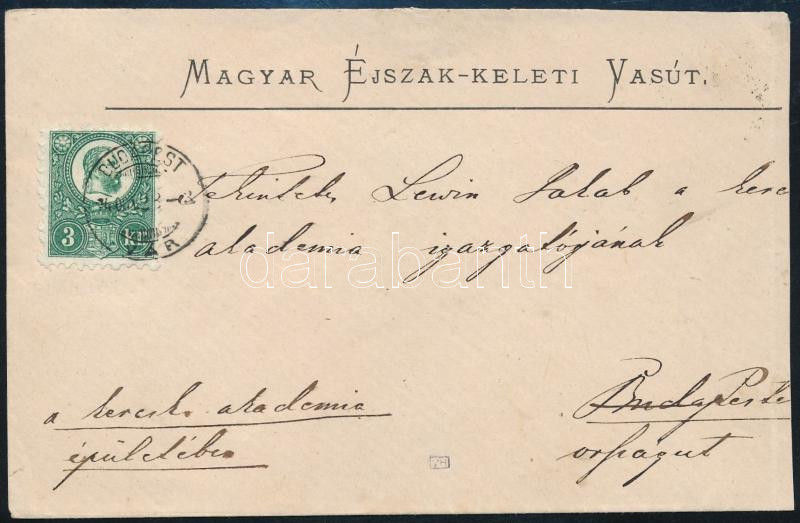 MAGYAR ÉJSZAK-KELETI VASÚT.
BUDAPEST
VÁR
3 Kr
Tekintetes Lewin Jakab a keresk
akademia igazgatójának
darabanth
a keresk. akademia
épületében
Budapesten
országut